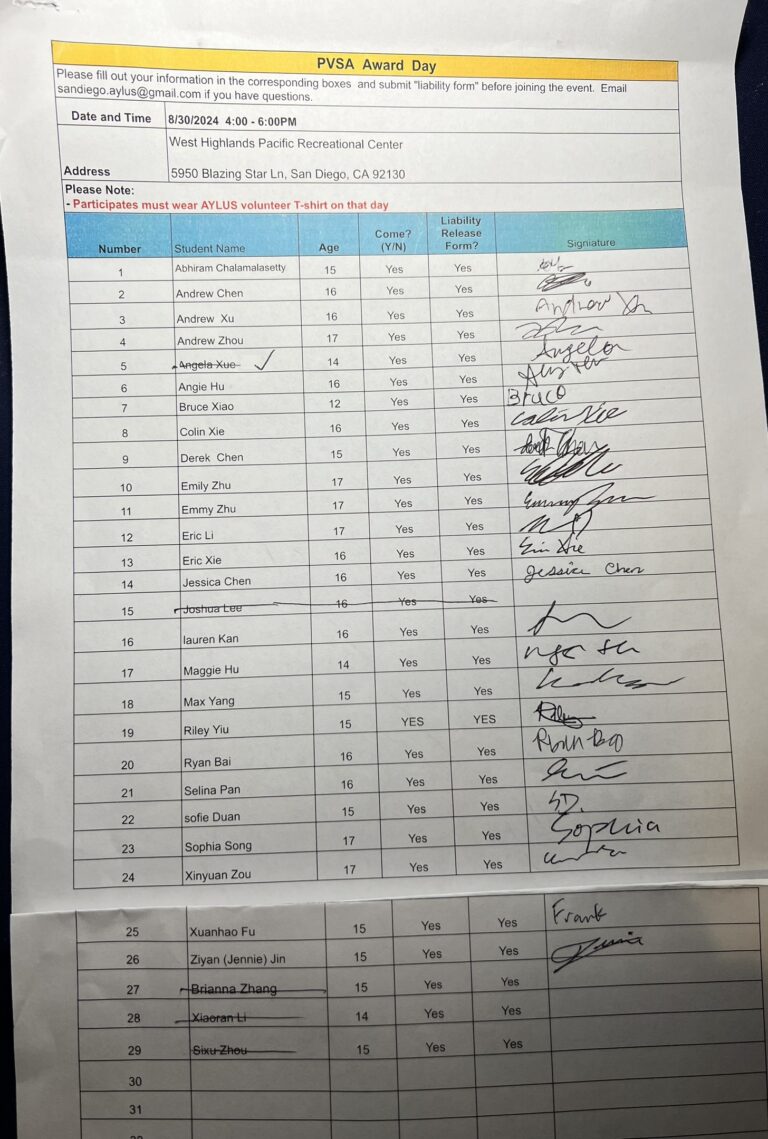 PVSA Award Day
Please fill out your information in the corresponding boxes and submit "liability form" before joining the event. Email
sandiego.aylus@gmail.com if you have questions.
Date and Time 8/30/2024 4:00 - 6:00PM
West Highlands Pacific Recreational Center
Address 5950 Blazing Star Ln, San Diego, CA 92130
Please Note:
- Participates must wear AYLUS volunteer T-shirt on that day
Number Student Name Age Come? (Y/N) Liability Release Form? Signiature
1 Abhiram Chalamalasetty 15 Yes Yes
2 Andrew Chen 16 Yes Yes
3 Andrew Xu 16 Yes Yes Andrew Xu
4 Andrew Zhou 17 Yes Yes
5 Angela Xue 14 Yes Yes Angela
6 Angie Hu 16 Yes Yes
7 Bruce Xiao 12 Yes Yes Bruce
8 Colin Xie 16 Yes Yes Colin Xie
9 Derek Chen 15 Yes Yes
10 Emily Zhu 17 Yes Yes
11 Emmy Zhu 17 Yes Yes
12 Eric Li 17 Yes Yes
13 Eric Xie 16 Yes Yes Eric Xie
14 Jessica Chen 16 Yes Yes Jessica Chen
15 Joshua Lee 16 Yes Yes
16 lauren Kan 16 Yes Yes
17 Maggie Hu 14 Yes Yes
18 Max Yang 15 Yes Yes
19 Riley Yiu 15 YES YES Riley
20 Ryan Bai 16 Yes Yes
21 Selina Pan 16 Yes Yes
22 sofie Duan 15 Yes Yes SD.
23 Sophia Song 17 Yes Yes Sophia
24 Xinyuan Zou 17 Yes Yes
25 Xuanhao Fu 15 Yes Yes Frank
26 Ziyan (Jennie) Jin 15 Yes Yes
27 Brianna Zhang 15 Yes Yes
28 Xiaoran Li 14 Yes Yes
29 Sixu Zhou 15 Yes Yes
30
31